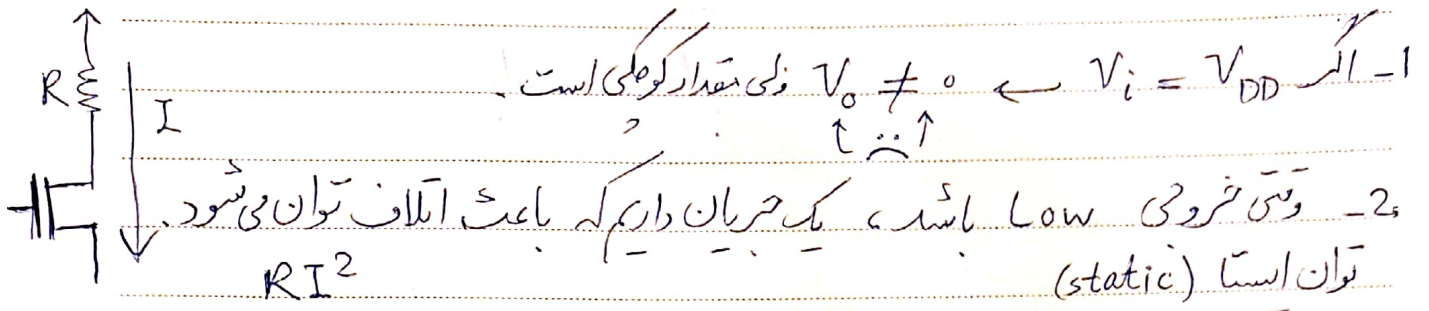 1- اگر Vi = VDD ← Vo ≠ 0 ولی مقدار کوچکی است.
2- وقتی خروجی Low باشد، یک جریان داریم که باعث اتلاف توان می‌شود.
توان ایستا (static) RI²
R
I